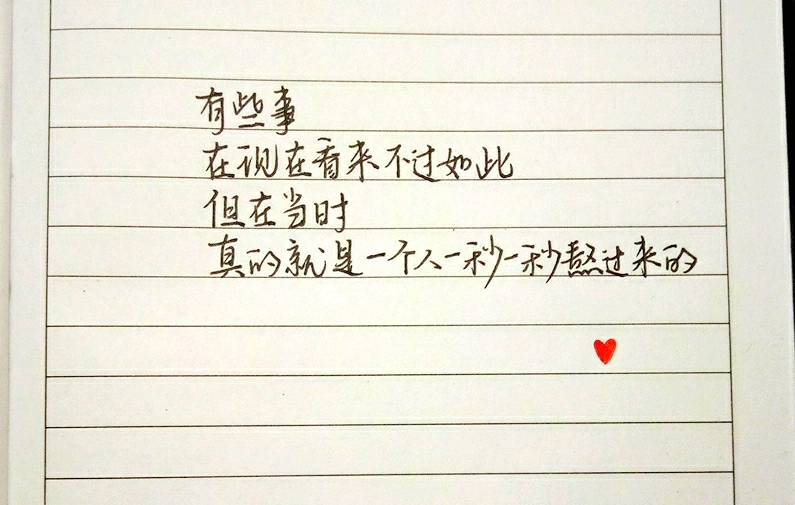 有些事
在现在看来不过如此
但在当时
真的就是一个人一秒一秒熬过来的